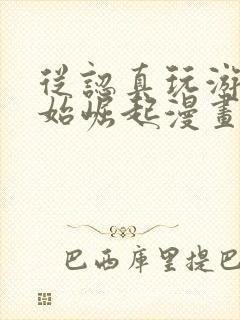 從認真玩游
始崛起漫畫
巴西庫里提巴